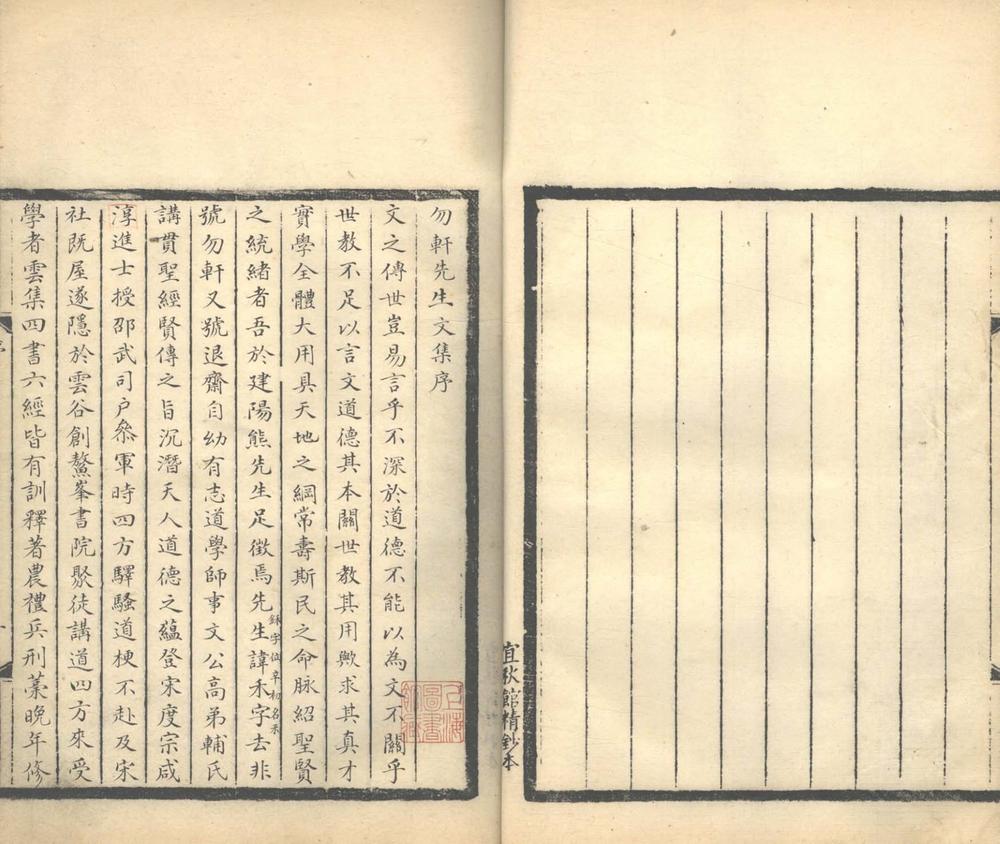 宜秋館精鈔本
勿軒先生文集序
文之傳世豈易言乎不深於道德不能以為文不關乎
世教不足以言文道德其本關世教其用歟求其真才
實學全體大用具天地之綱常壽斯民之命脉紹聖賢
之統緒者吾於建陽熊先生足徵焉先生諱禾字去非
號勿軒又號退齋自幼有志道學師事文公高弟輔氏
講貫聖經賢傳之旨沉潛天人道德之藴登宋度宗咸
淳進士授邵武司户叅軍時四方驛騷道梗不赴及宋
社既屋遂隱於雲谷創鰲峯書院聚徒講道四方來受
學者雲集四書六經皆有訓釋著農禮兵刑藁晚年修
上海圖書館藏